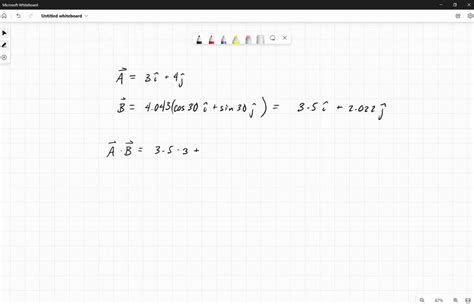 Microsoft Whiteboard
Untitled whiteboard
A⃗ = 3î + 4ĵ
B⃗ = 4.043(cos30 î + sin30 ĵ) = 3.5 î + 2.022 ĵ
A⃗ · B⃗ = 3.5 · 3 +
62%